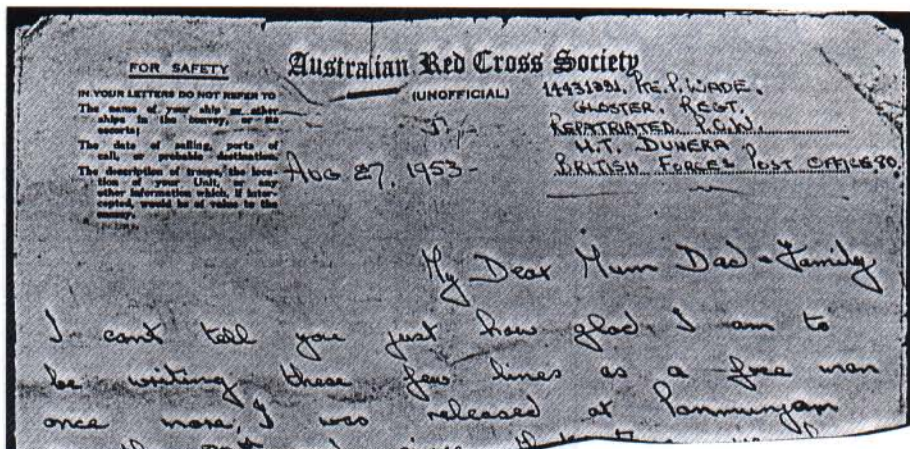 FOR SAFETY
IN YOUR LETTERS DO NOT REFER TO
The name of your ship or other
ships in the convoy, or its
escorts;
The date of sailing, ports of
call, or probable destination.
The description of troops, the loca-
tion of your Unit, or any
other information which, if inter-
cepted, would be of value to the
enemy.
Australian Red Cross Society
(UNOFFICIAL)
PTE. P. WADE.
GLOSTER. REGT.
REPATRIATED P.O.W.
H.T. DUNERA
BRITISH FORCES POST OFFICE 90.
AUG 27, 1953-
My Dear Mum Dad & Family
I cant tell you just how glad I am to
be writing these few lines as a free man
once more, I was released at Panmunjam